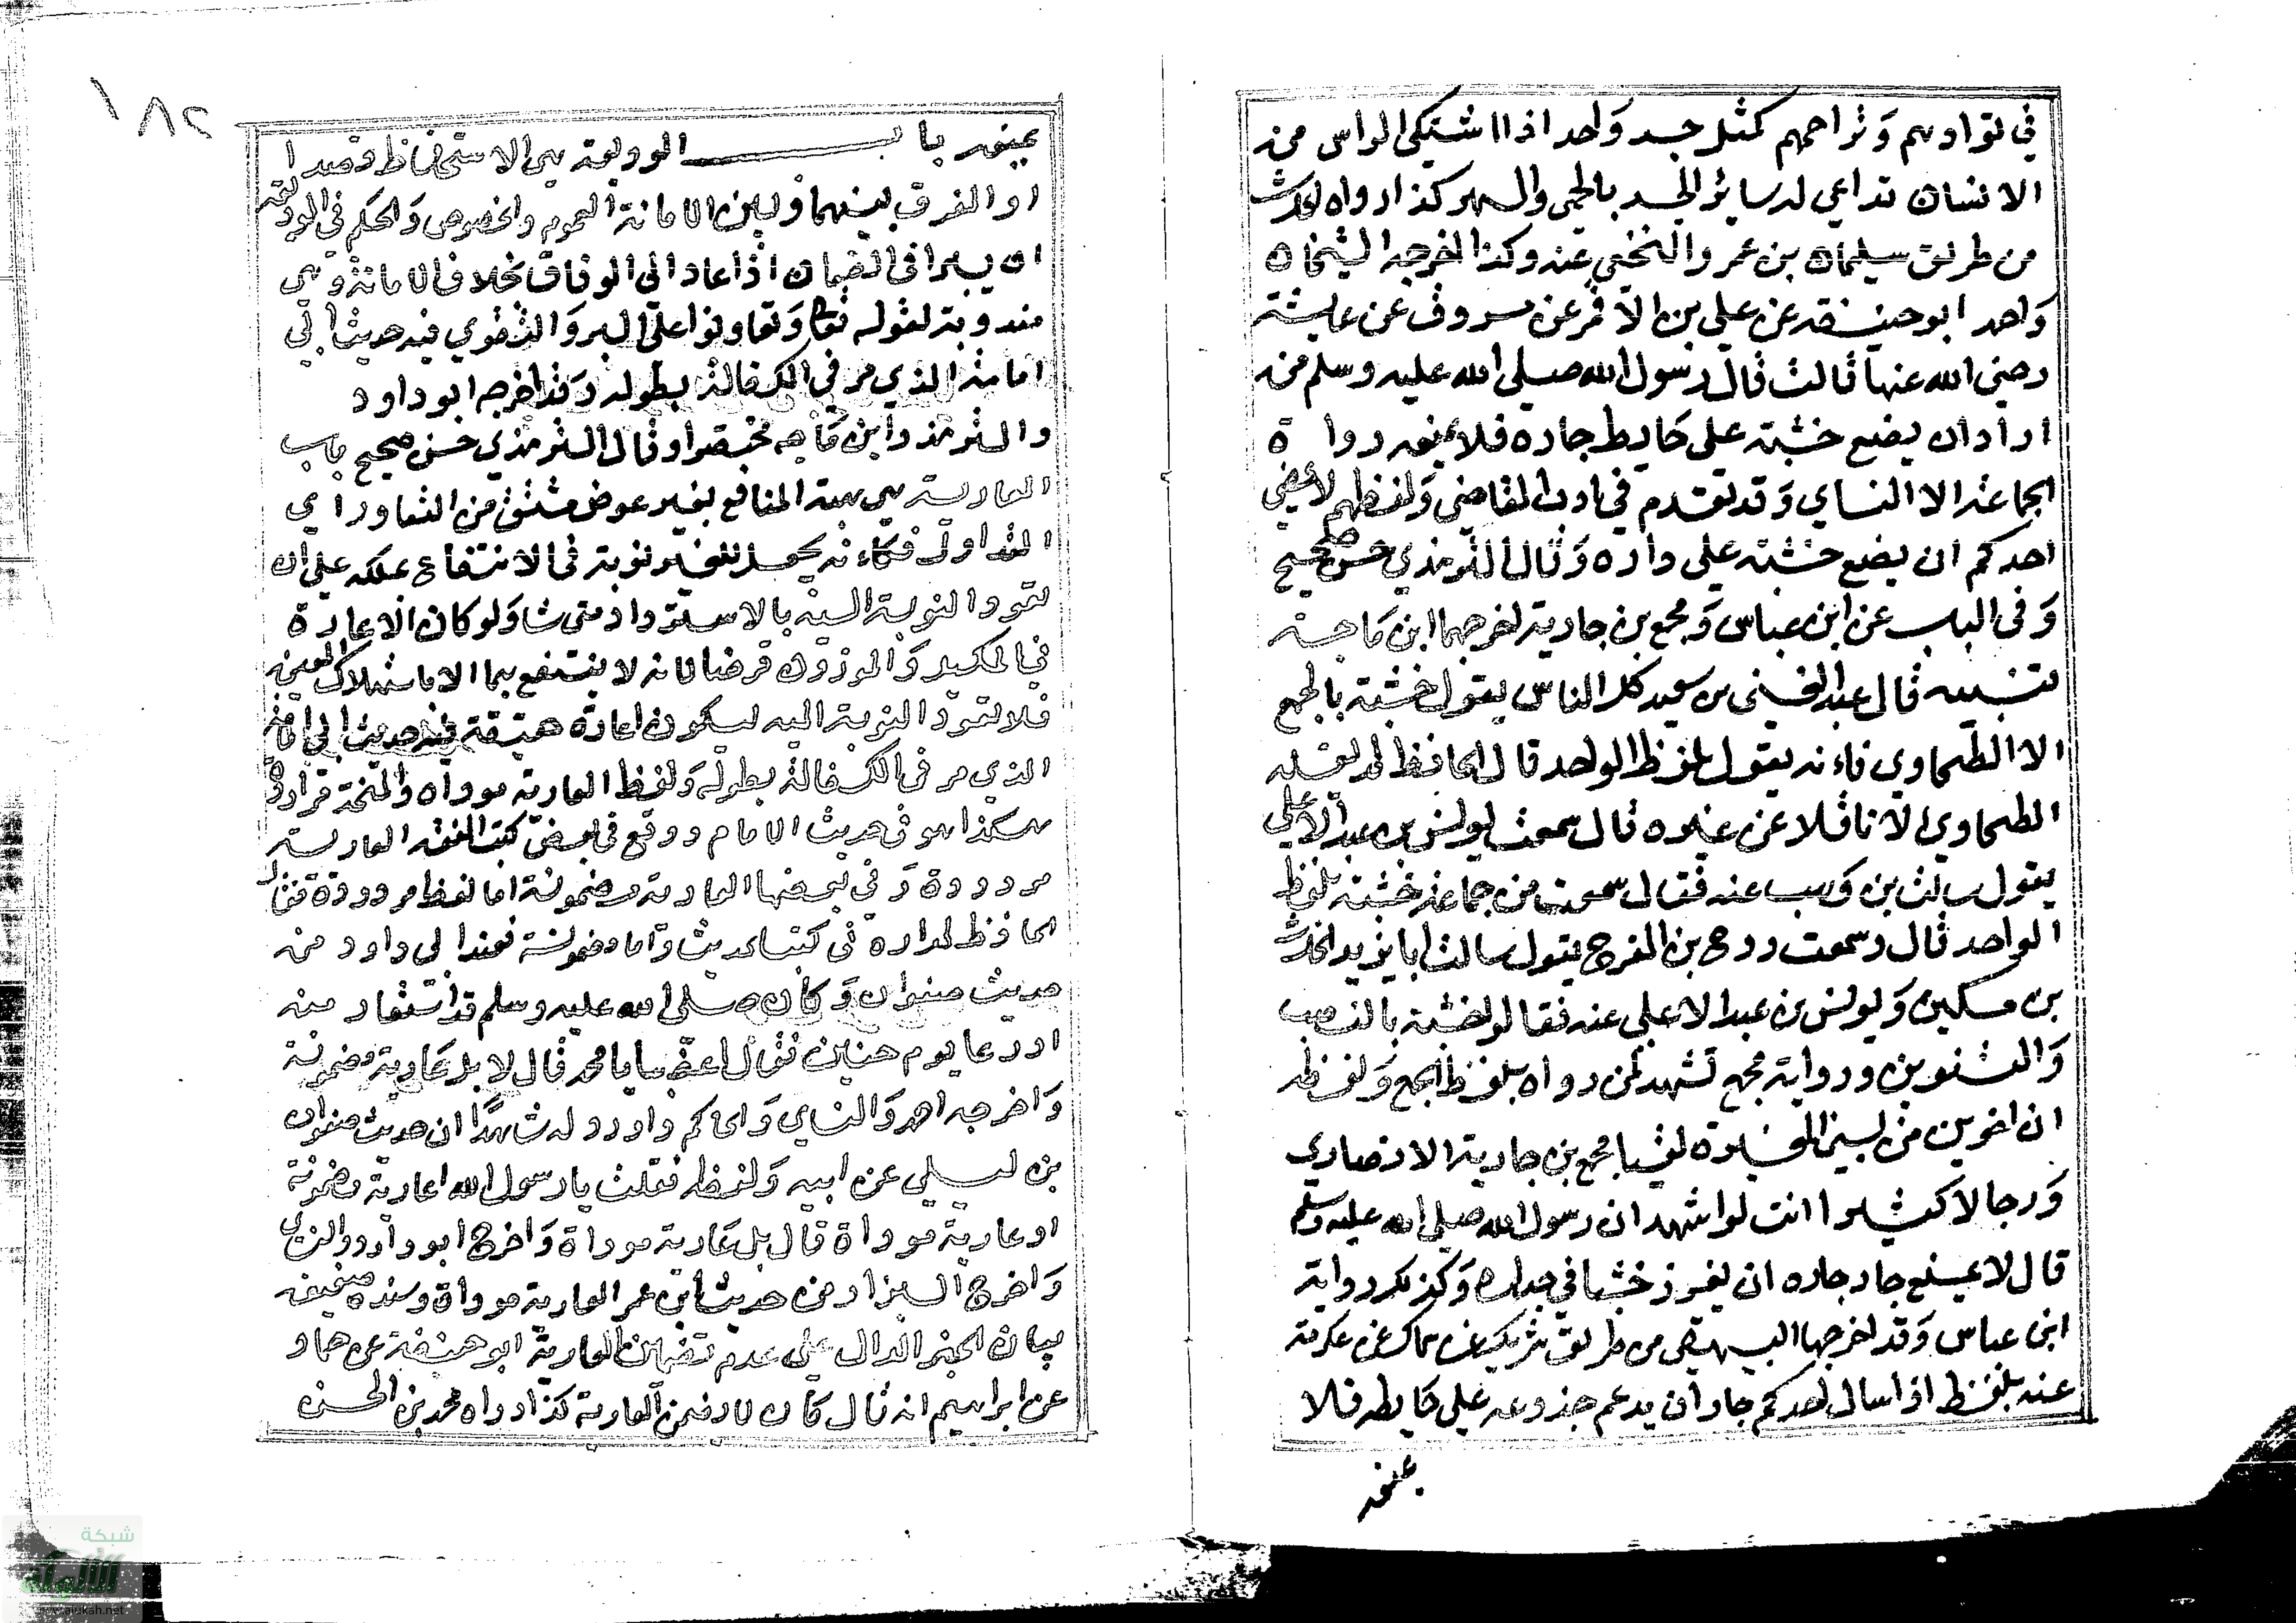 في توادهم وتراحمهم كمثل جسد واحد اذا اشتكي الراس من
الانسان تداعي له سائر الجسد بالحمي والسهر كذا رواه الحارث
من طريق سليمان بن عمرو النخعي عنه وكذا اخرجه الشيخان
واحمد ابو حنيفة عن علي بن الاقمر عن مسروق عن عايشة
رضي الله عنها قالت قال رسول الله صلي الله عليه وسلم من
اراد ان يضع خشبته علي حايط جاره فلا يمنعه رواه
الجماعة الا النساي وقد تقدم في ادب القاضي ولفظهم لا يمنعن
احدكم ان يضع خشبته علي داره وقال الترمذي حسن صحيح
وفي الباب عن ابن عباس ومجمع بن جارية اخرجهما ابن ماجة
تنبيه قال عبد الغني بن سعيد كل الناس يقول خشبه بالجمع
الا الطحاوي فاءنه يقول بلفظ الواحد قال الحافظ لم يقله
الطحاوي الا ناقلا عن غيره قال سمعت يونس بن عبد الاعلي
يقول سالت بن وهب عنه فقال سمعت من جماعة خشبة بلفظ
الواحد قال وسمعت روح بن الفرج يقول سالت ابا يزيد والحارث
بن مسكين ويونس بن عبد الاعلي عنه فقالوا خشبة بالنصب
والتنوين ورواية مجمع تشهد لمن رواه بلفظ الجمع ولفظه
ان اخوين من بني المغيرة لقيا مجمع بن جارية الانصاري
ورجالا كثيرا انت لوا شهد ان رسول الله صلي الله عليه وسلم
قال لا يمنع جار جاره ان يغرز خشبا في جداره وكذلك رواية
ابن عباس وقد اخرجها البيهقي من طريق شريك عن سماك عن عكرمة
عنه بلفظ اذا سال احدكم جاره ان يدعم جذوعه علي حايطه فلا
يمنعه
١٨٢
يمنعه باب الوديعة هي الاستحفاظ قصدا
او الفرق بينهما وبين الامانة العموم والخصوص والحكم في الوديعة
ان يبرا في الضمان اذا عاد الي الوفاق بخلاف الامانة وهي
مندوبة لقوله تعالي وتعاونوا علي البر والتقوي فيه حديث ابي
امامة الذي مر في الكفالة بطوله وقد اخرجه ابو داود
والترمذي وابن ماجه مختصرا وقال الترمذي حسن صحيح باب
العارية هي هبة المنافع بغير عوض مشتق من التعاور اي
التداول فكاءنه يجعل للغير نوبة في الانتفاع بملكه علي ان
تعود النوبة اليه بالاسترداد متي شا ولو كان الاعارة
في المكيل والموزون قرضا لانه لا ينتفع بهما الا باستهلاك العين
فلا تعود النوبة اليه ليكون اعارة حقيقة فيه حديث ابي امامة
الذي مر في الكفالة بطوله ولفظ العارية موداه والمنحة مردودة
هكذا هو في حديث الامام ووقع في بعض كتب الفقه العارية
مردودة وفي بعضها العارية مضمونة اما لفظ مردودة فقال
الحافظ لم اره في كتب الحديث واما مضمونة فعند ابي داود من
حديث صفوان وكان صلي الله عليه وسلم قد استعار منه
ادرعا يوم حنين فقال اغصبا يا محمد قال لا بل عارية مضمونة
واخرجه احمد والنساي والحاكم واورد له شاهدا ان حديث صفوان
بن ليلي عن ابيه ولفظه فقلت يا رسول الله اعارية مضمونة
او عارية موداة قال بل عارية موداة واخرج ابو داود والنساي
واخرج البزار من حديث ابن عمر العارية موداة وسنده ضعيف
بيان الخبر الدال علي عدم تضمين العارية ابو حنيفة عن حماد
عن ابراهيم انه قال كان لا يضمن العارية كذا رواه محمد بن الحسن
شبكة
الألوكة
www.alukah.net